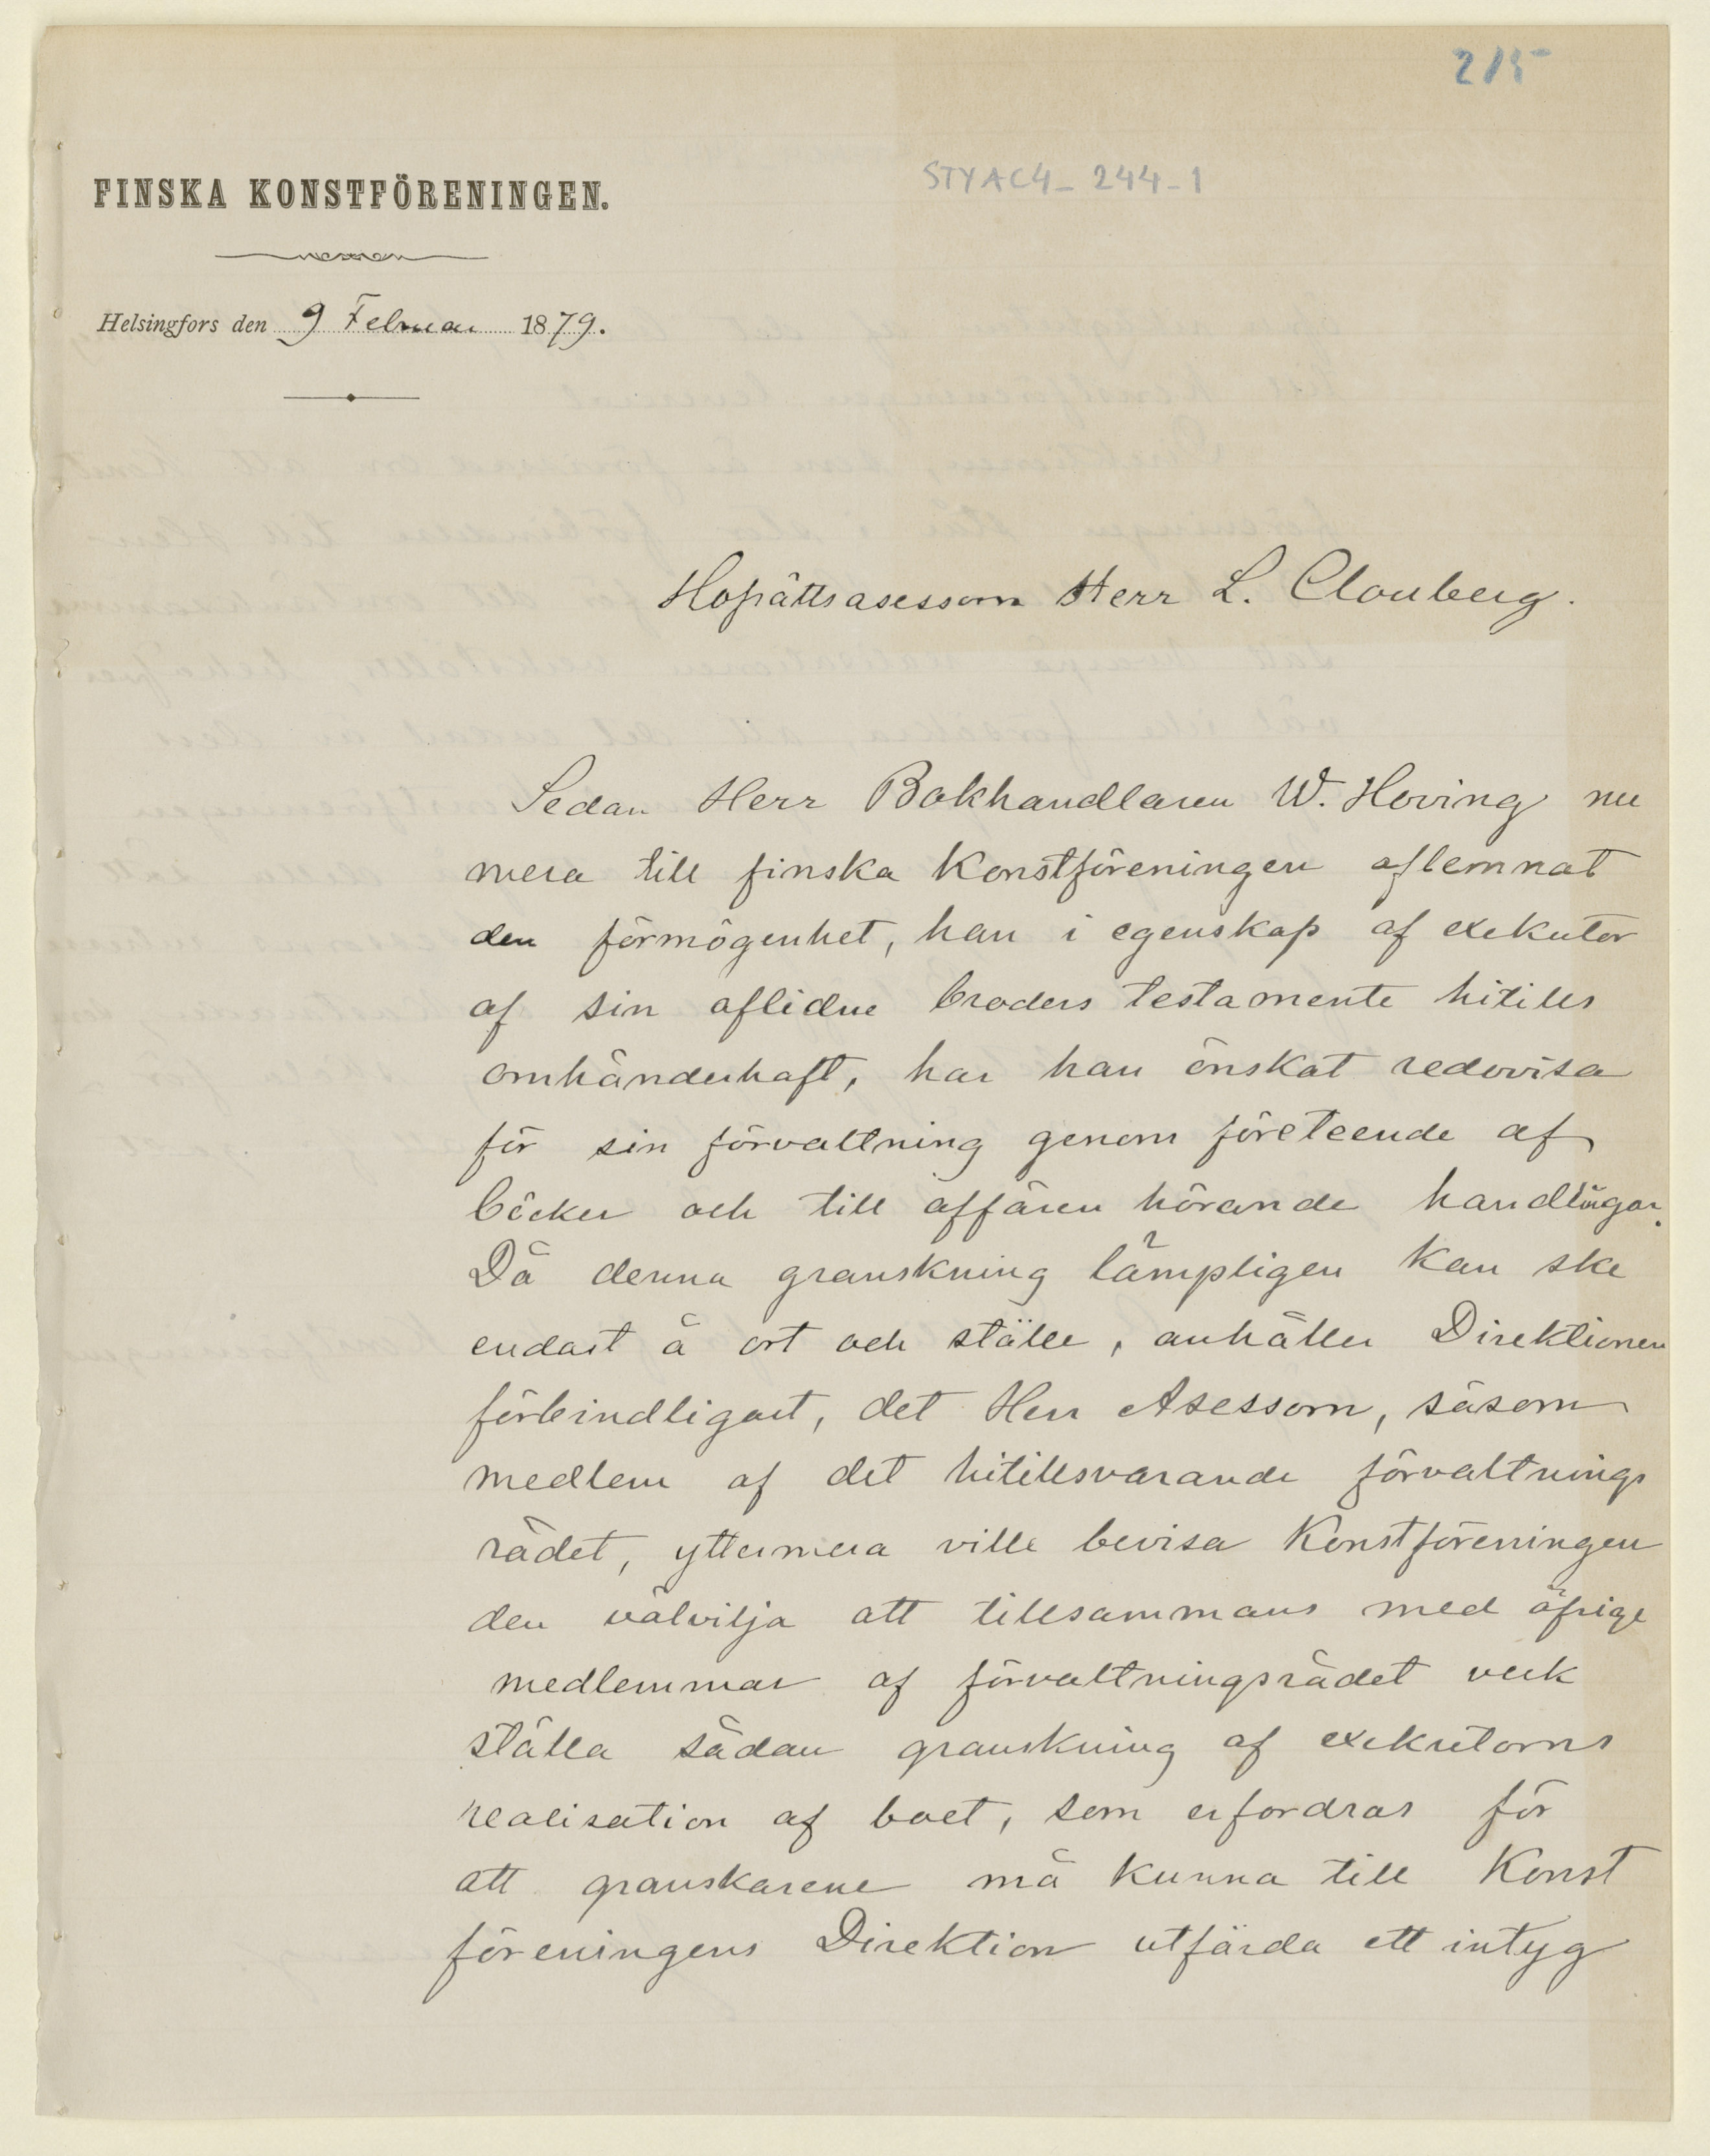 215
STYAC4_244_1
FINSKA KONSTFÖRENINGEN.
Helsingfors den 9 Februari 1879.
Hofrättsasessorn Herr L. Clouberg.
Sedan Herr Bokhandlaren W. Hoving nu
mera till finska Konstföreningen aflemnat
den förmögenhet, han i egenskap af exekutor
af sin aflidne broders testamente hitills
omhänderhaft, har han önskat redovisa
för sin förvaltning genom företeende af
böcker och till affären hörande handlingar.
Då denna granskning lämpligen kan ske
endast å ort och ställe, anhåller Direktionen
förbindligast, det Herr Asessorn, såsom
medlem af det hitillsvarande förvaltnings
rådet, yttermera ville bevisa Konstföreningen
den välvilja att tillsammans med öfrige
medlemmar af förvaltningsrådet verk
ställa sådan granskning af exekutorns
realisation af boet, som erfordras för
att granskarene må kunna till Konst
föreningens Direktion utfärda ett intyg